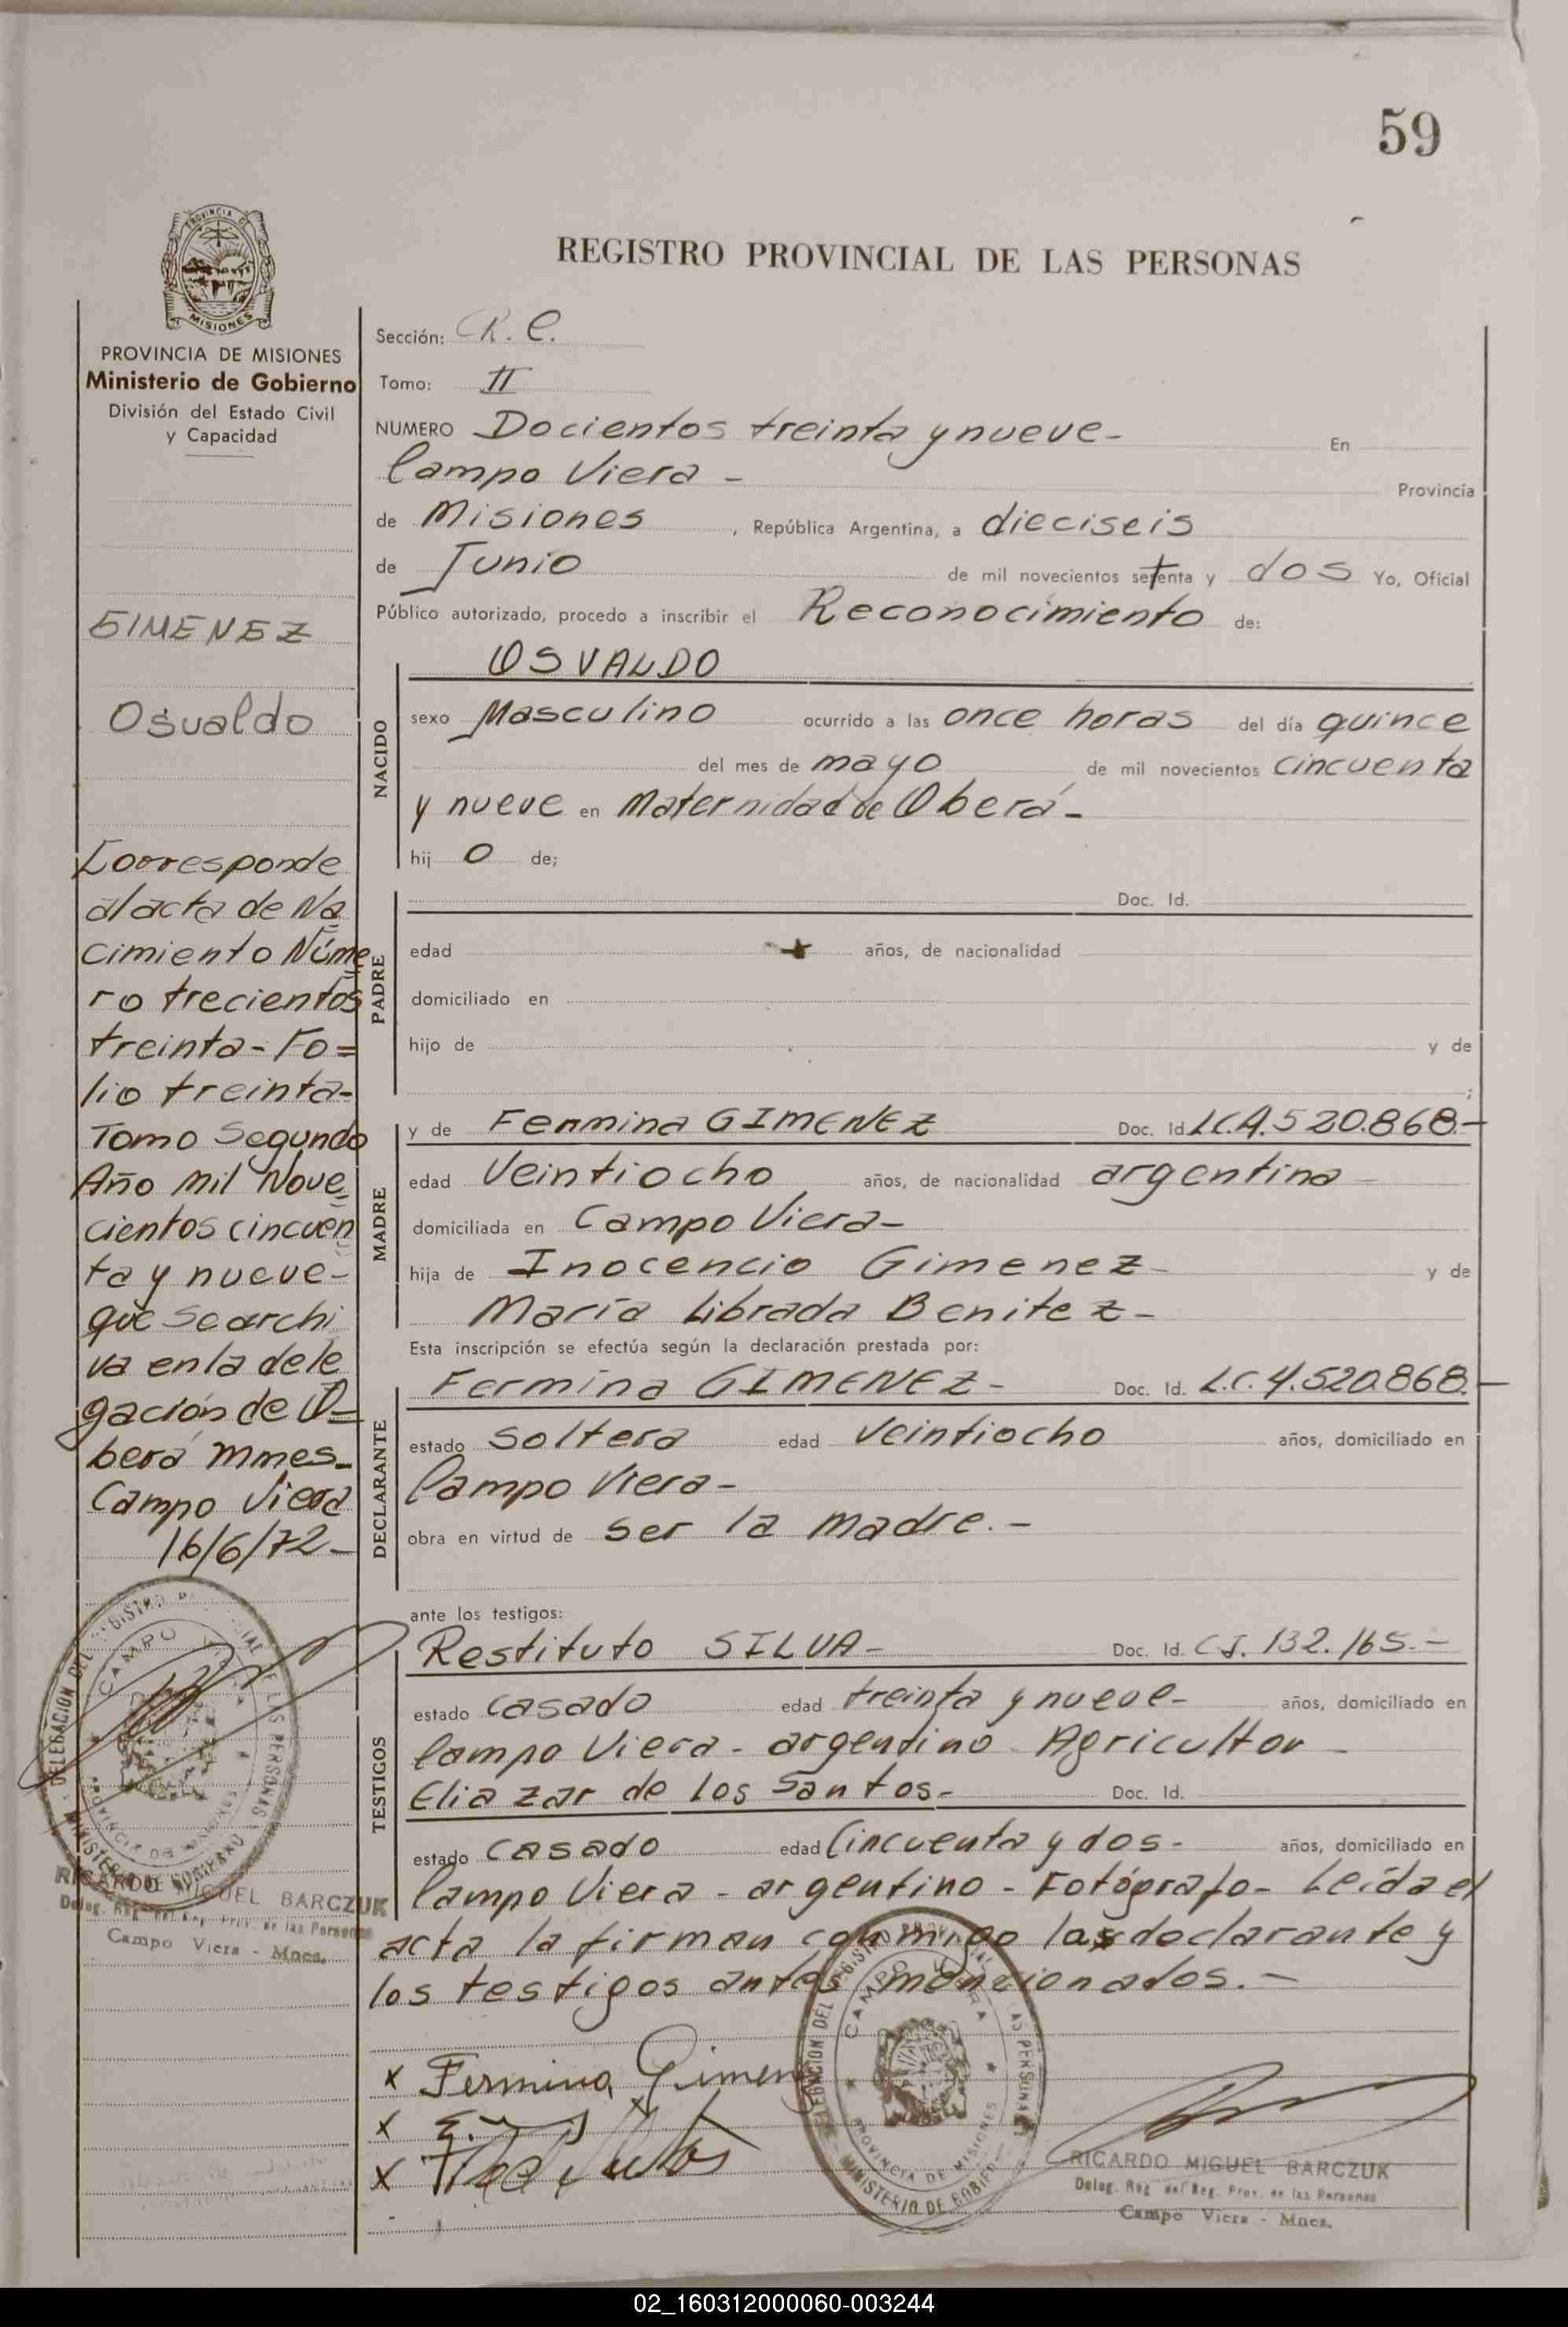 59
REGISTRO PROVINCIAL DE LAS PERSONAS
PROVINCIA DE
MISIONES
PROVINCIA DE MISIONES
Ministerio de Gobierno
División del Estado Civil
y Capacidad
GIMENEZ
Osvaldo
Corresponde
al acta de Na
cimiento Núme
ro trecientos
treinta - Fo=
lio treinta-
Tomo Segundo
Año mil Nove
cientos cincuen
ta y nueve-
que se archi
va en la dele
gación de O-
berá Mnes-
Campo Viera
16/6/72-
RICARDO MIGUEL BARCZUK
Deleg. Reg. del Reg. Prov. de las Personas
Campo Viera - Mnes.
Sección: R. C.
Tomo: II
NUMERO Docientos treinta y nueve- En
Campo Viera - Provincia
de Misiones, República Argentina, a dieciseis
de Junio de mil novecientos setenta y dos Yo, Oficial
Público autorizado, procedo a inscribir el Reconocimiento de:
NACIDO
OSVALDO
sexo Masculino ocurrido a las once horas del día quince
del mes de mayo de mil novecientos cincuenta
y nueve en Maternidad de Oberá-
hij o de;
PADRE
Doc. Id.
edad años, de nacionalidad
domiciliado en
hijo de y de
;
MADRE
y de Fermina GIMENEZ Doc. Id L.C.4.520.868.-
edad Veintiocho años, de nacionalidad argentina
domiciliada en Campo Viera-
hija de Inocencio Gimenez- y de
María Librada Benitez-
Esta inscripción se efectúa según la declaración prestada por:
DECLARANTE
Fermina GIMENEZ- Doc. Id. L.C. 4.520.868.-
estado Soltera edad Veintiocho años, domiciliado en
Campo Viera-
obra en virtud de ser la madre.-
ante los testigos:
TESTIGOS
Restituto SILVA- Doc. Id. C.I. 132.165.-
estado Casado edad treinta y nueve- años, domiciliado en
Campo Viera - argentino - Agricultor
Eliazar de los Santos- Doc. Id.
estado Casado edad Cincuenta y dos- años, domiciliado en
Campo Viera - argentino - Fotógrafo - Leída el
acta la firman conmigo las declarante y
los testigos antes mencionados.-
x Fermina Gimenez
x
x
DELEGACION DEL REGISTRO PROVINCIAL DE LAS PERSONAS
CAMPO VIERA
PROVINCIA DE MISIONES
MINISTERIO DE GOBIERNO
RICARDO MIGUEL BARCZUK
Deleg. Reg. del Reg. Prov. de las Personas
Campo Viera - Mnes.
02_160312000060-003244